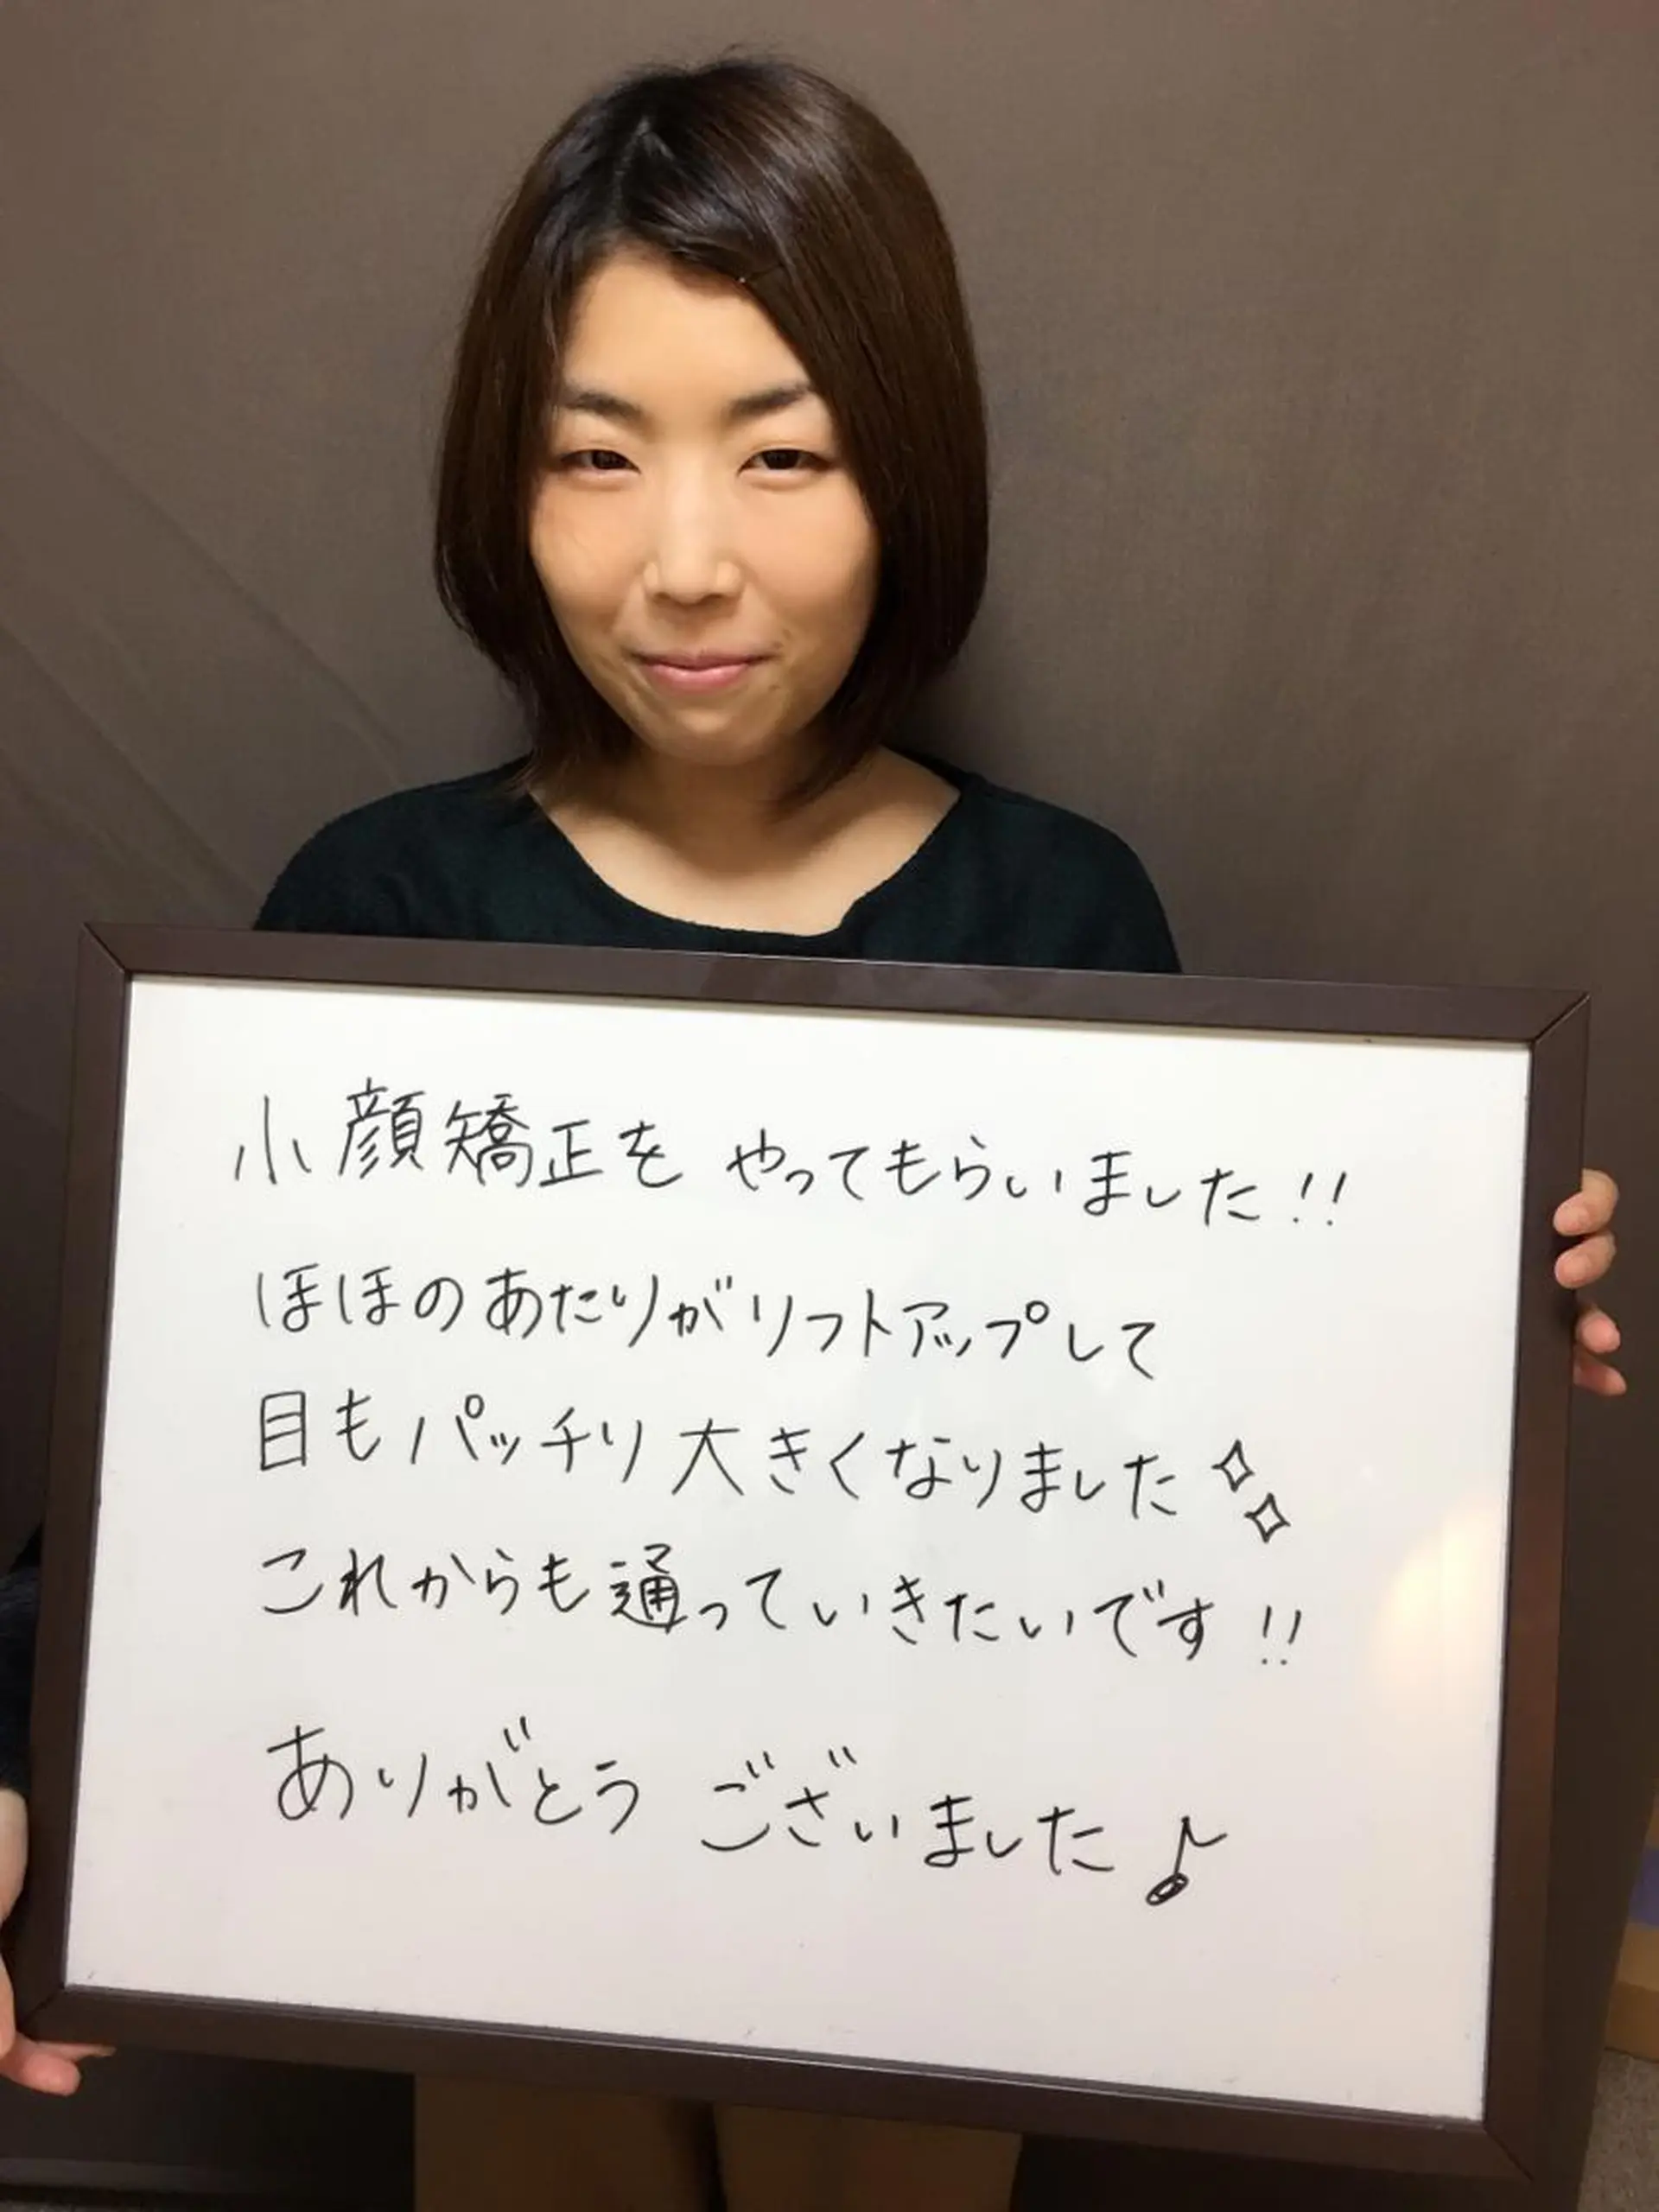 小顔矯正を やってもらいました!!
ほほのあたりがリフトアップして
目もパッチリ大きくなりました✧✧
これからも通っていきたいです!!
ありがとう ございました♪